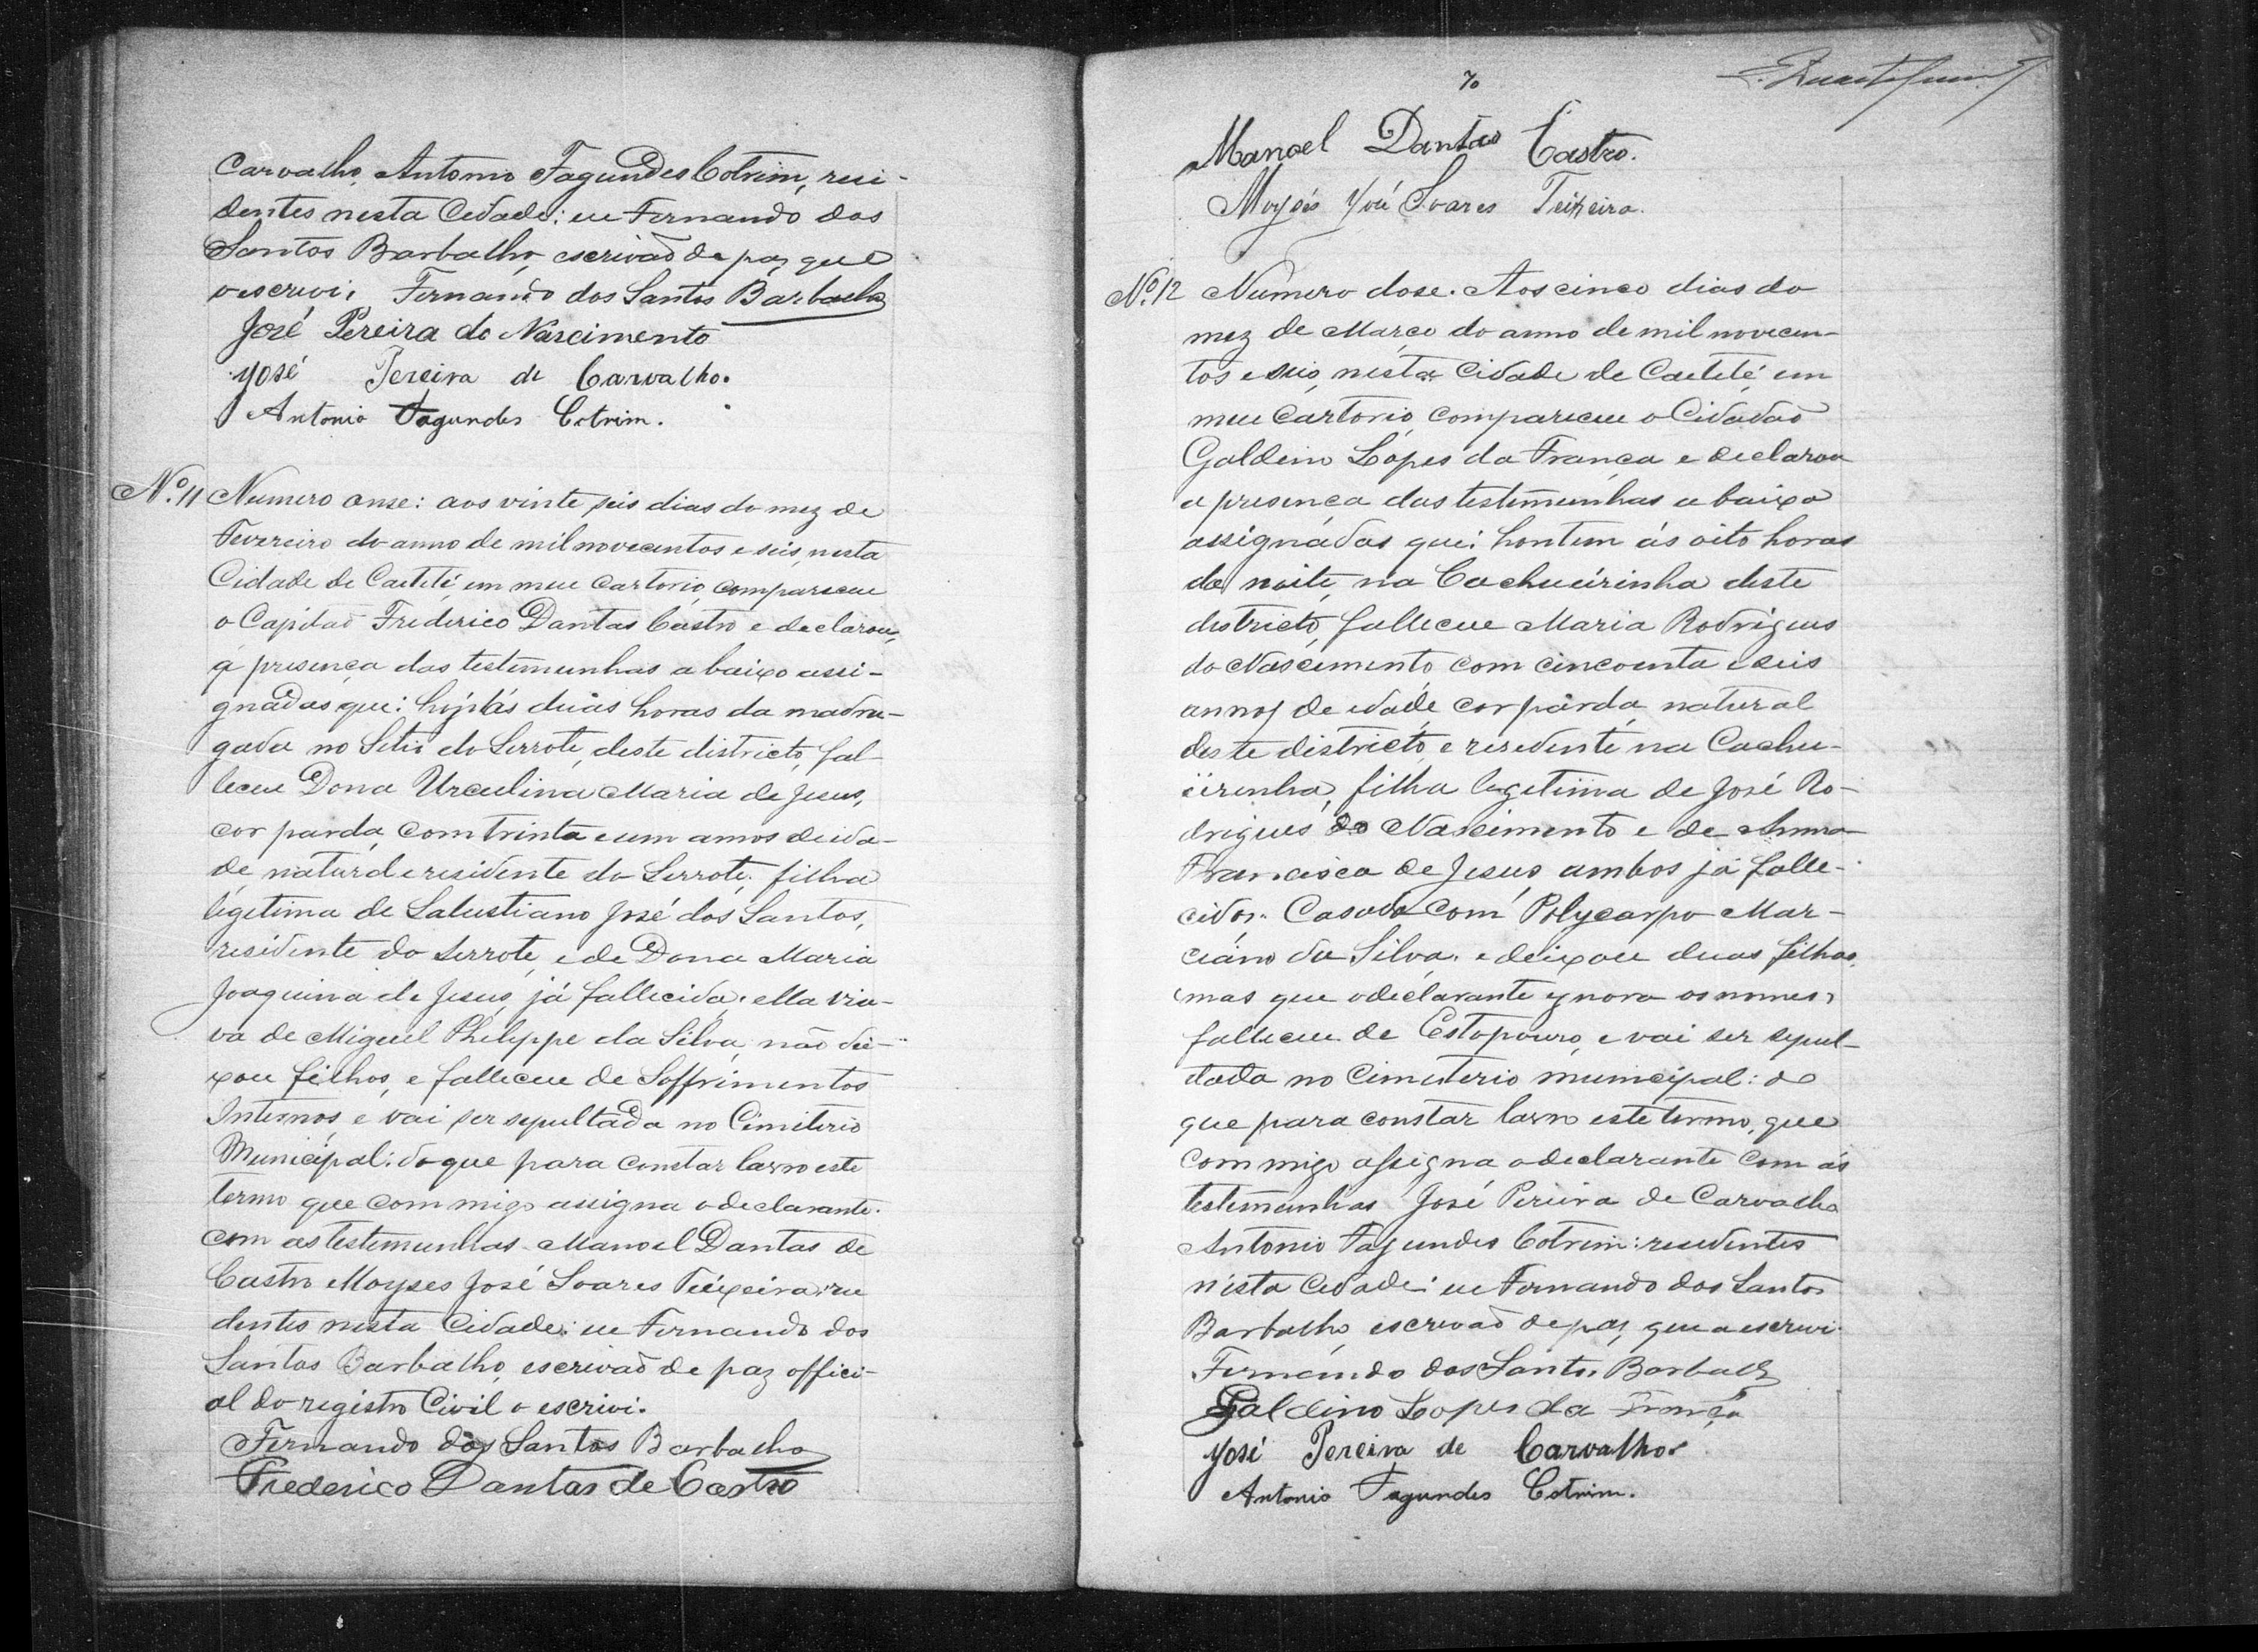 Carvalho, Antonio Fagundes Cotrim, resi-
dentes nesta Cidade: eu Fernando dos
Santos Barbalho, escrivão de paz que
o escrevi. Fernando dos Santos Barbalho
José Pereira do Nascimento
José Pereira de Carvalho.
Antonio Fagundes Cotrim.
Nº. 11 Numero onse: aos vinte seis dias do mez de
Fevereiro do anno de mil novecentos e seis, nesta
Cidade de Caeteté, em meu cartorio, compareceu
o Capitão Frederico Dantas Castro e declarou,
a presença das testemunhas a baixo assi-
gnadas que: hoje ás duas horas da madru-
gada no Sitio do Serrote, deste districto, fal-
leceu Dona Urculina Maria de Jesus,
cor parda, com trinta e um annos de ida-
de natural e residente do Serrote, filha
legetima de Salustiano José dos Santos,
residente do Serrote, e de Dona Maria
Joaquina de Jesus, já fallecida, ella viu-
va de Miguel Philippe da Silva, não dei-
xou filhos, e falleceu de Soffrimentos
Internos e vai ser sepultada no Cimiterio
Municipal: do que para constar lavro este
termo que commigo assigna o declarante
com as testemunhas Manoel Dantas de
Castro Moyses José Soares Teixeira: resi
dentes nesta Cidade: eu Fernando dos
Santos Barbalho, escrivão de paz offici-
al do registro Civil o escrivi.
Fernando dos Santos Barbalho
Frederico Dantas de Castro
70
Manoel Dantas Castro.
Moysés José Soares Teixeira.
Nº. 12 Numero dose. Aos cinco dias do
mez de Março do anno de mil novecen-
tos e seis, nesta Cidade de Caeteté, em
meu Cartorio, compareceu o Cidadão
Galdino Lopes da França e declarou
a presença das testemunhas a baixo
assignadas que: hontem ás oito horas
da noite, na Cachueirinha deste
districto, falleceu Maria Rodrigues
do Nascimento, com cincoenta e seis
annos de idade, cor parda, natural
deste districto, e residente na Cachu-
eirinha, filha legetima de José Ro-
drigues do Nascimento e de Anna
Francisca de Jesus, ambos já falle-
cidos. Casada com Polycarpo Mar-
ciano da Silva, e deixou duas filhas,
mas que o declarante ignora os nomes,
falleceu de Estopouro, e vai ser sepul-
tada no Cimiterio municipal: do
que para constar lavro este termo, que
commigo assigna o declarante com as
testemunhas José Pereira de Carvalho
Antonio Fagundes Cotrim: residentes
nesta Cidade: eu Fernando dos Santos
Barbalho, escrivão de paz, que o escrevi.
Fernando dos Santos Barbalho
Galdino Lopes da França
José Pereira de Carvalho
Antonio Fagundes Cotrim.